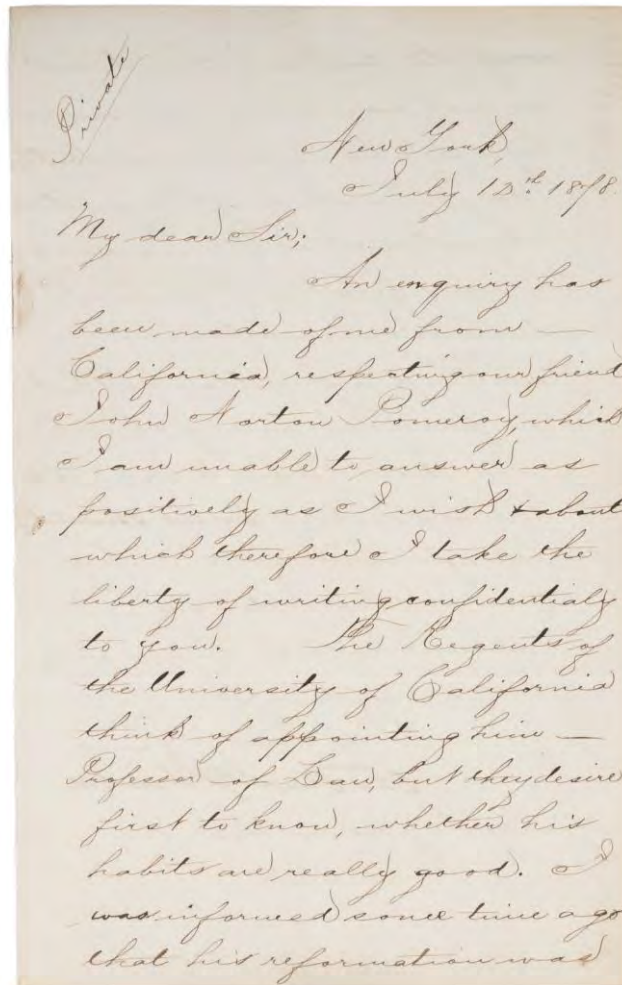 Private
New York,
July 12th. 1878.
My dear Sir;
An enquiry has
been made of me from —
California, respecting our friend
John Norton Pomeroy, which
I am unable to answer as
positively as I wish & about
which therefore I take the
liberty of writing confidentialy
to you. The Regents of
the University of California
think of appointing him —
Professor of Law, but they desire
first to know, whether his
habits are really good. I
was informed some time ago
that his reformation was